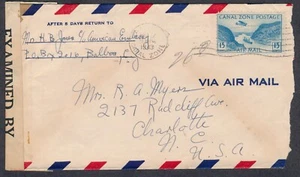 EXAMINED BY
AFTER 5 DAYS RETURN TO
Mr. H. B. Jones % American Embassy
P.O. Box 2016, Balboa, C.Z.
CANAL ZONE POSTAGE
AIR MAIL
15 15
VIA AIR MAIL
Mrs. R. A. Myers
2137 Radcliff Ave.
Charlotte
N. C.
U.S.A.